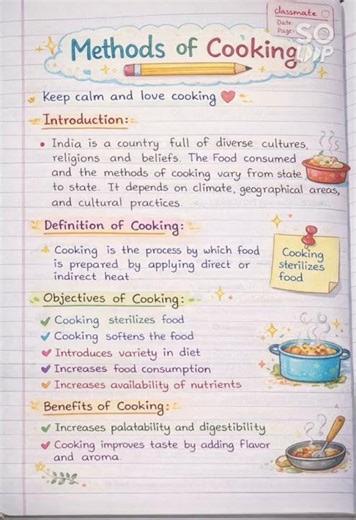 classmate
Date:
Page:
SO
UP
Methods of Cooking
Keep calm and love cooking
Introduction:
• India is a country full of diverse cultures,
religions and beliefs. The Food consumed
and the methods of cooking vary from state
to state. It depends on climate, geographical areas,
and cultural practices.
Definition of Cooking:
Cooking is the process by which food
is prepared by applying direct or
indirect heat
Cooking
sterilizes
food
Objectives of Cooking:
✔ Cooking sterilizes food
✔ Cooking softens the food
✔ Introduces variety in diet
✔ Increases food consumption
✔ Increases availability of nutrients
Benefits of Cooking:
✔ Increases palatability and digestibility
✔ Cooking improves taste by adding flavor
and aroma.